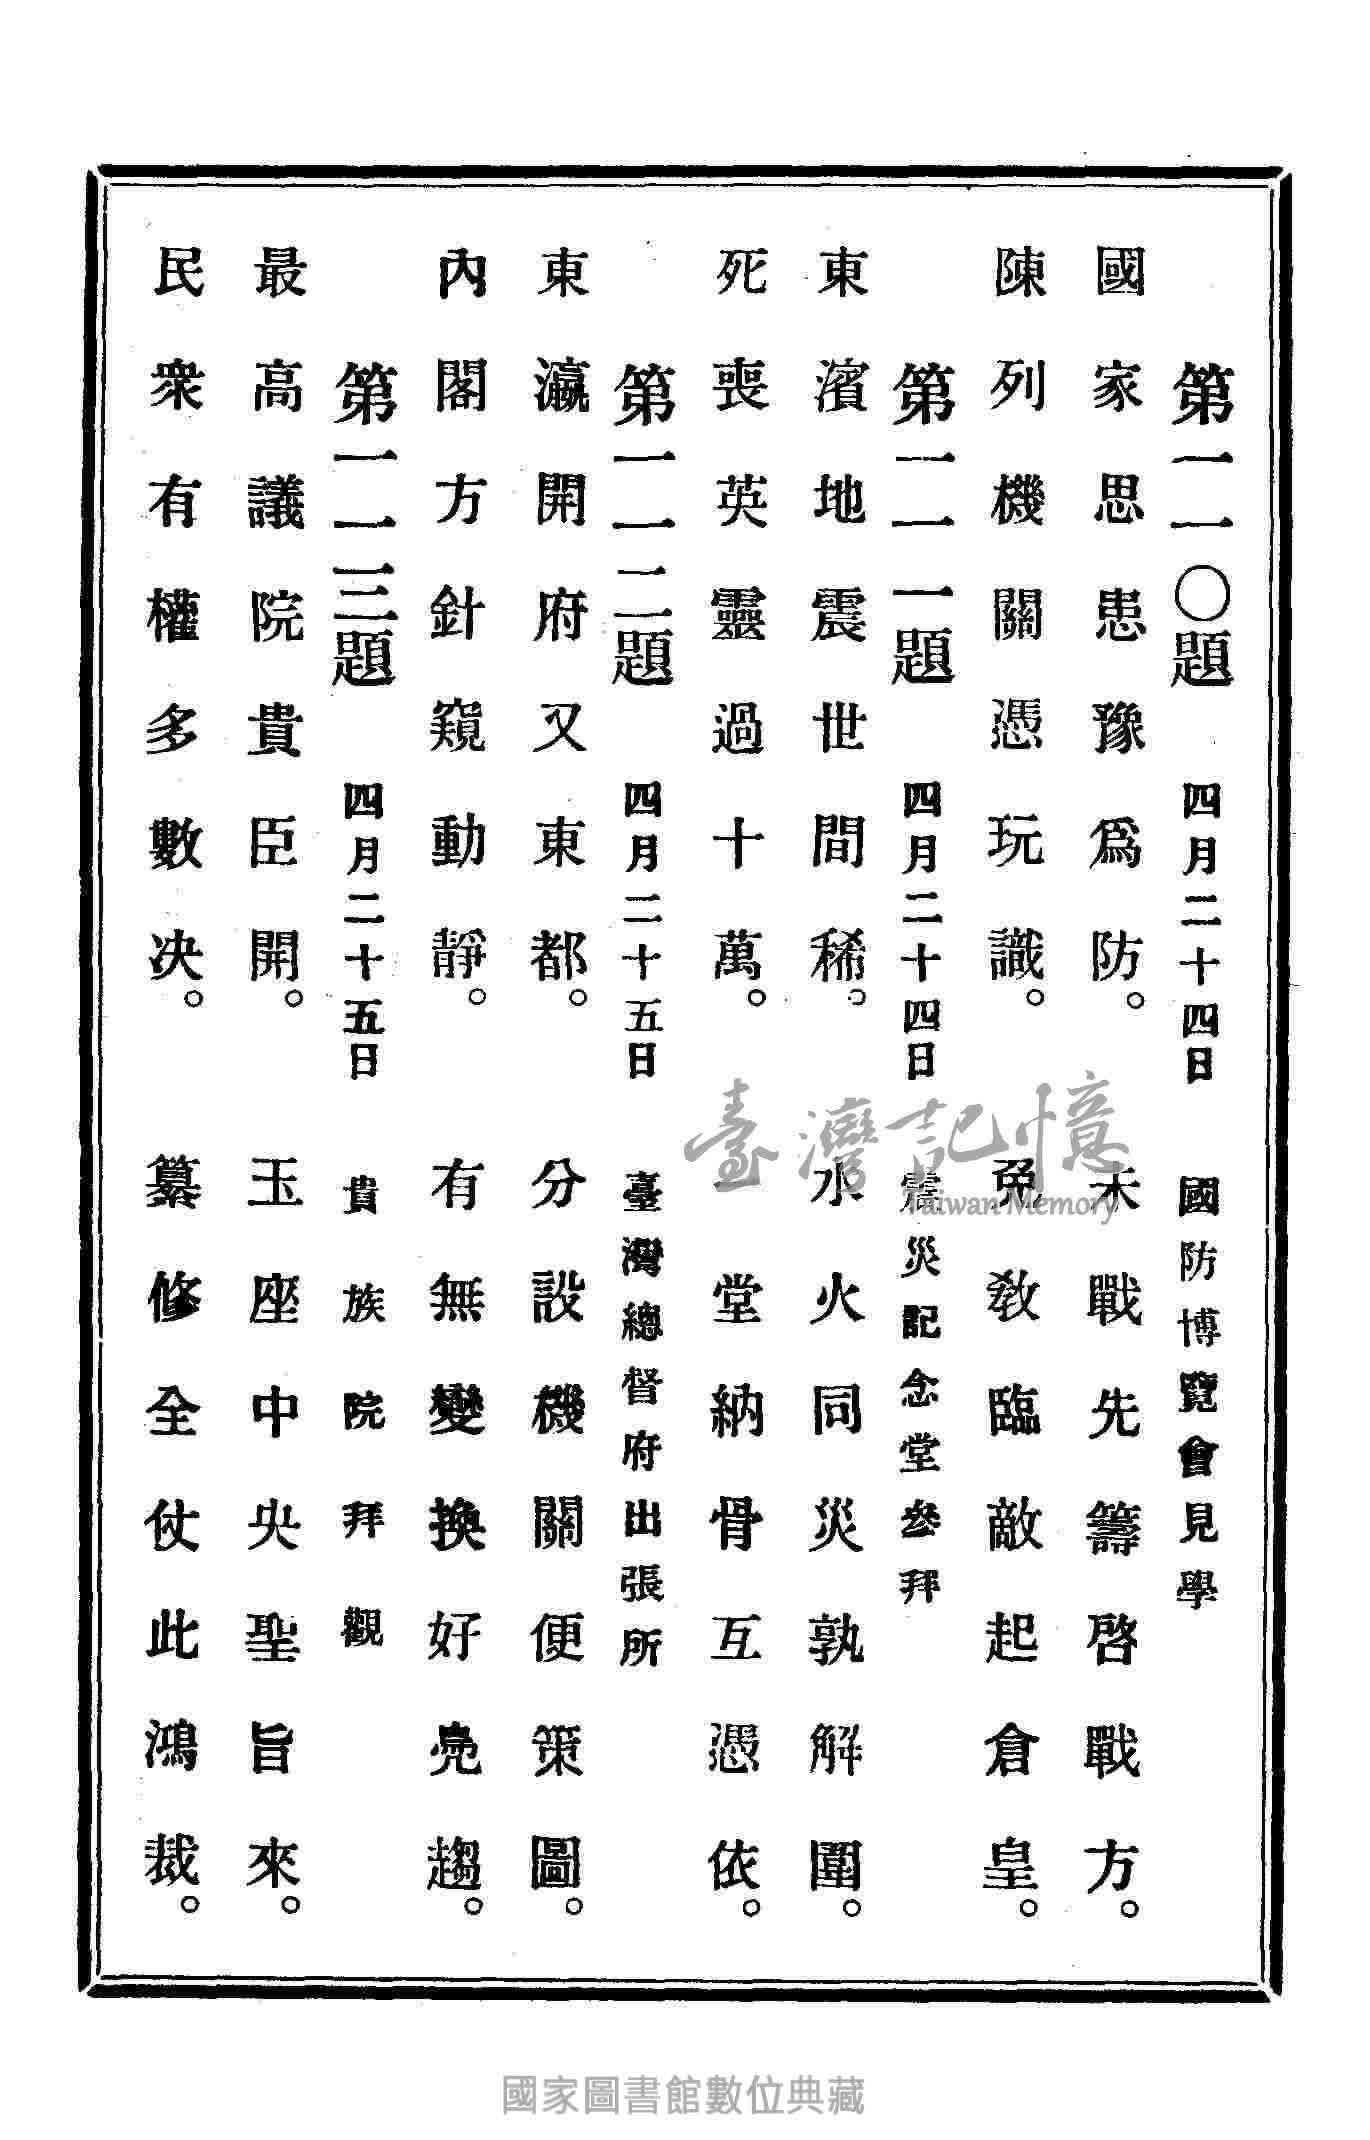 第一一〇題　四月二十四日　國防博覽會見學
國家思患豫爲防。　未戰先籌啓戰方。
陳列機關憑玩識。　免敎臨敵起倉皇。
第一一一題　四月二十四日　震災記念堂參拜
東濱地震世間稀。　水火同災孰解圍。
死喪英靈過十萬。　一堂納骨互憑依。
第一一二題　四月二十五日　臺灣總督府出張所
東瀛開府又東都。　分設機關便策圖。
內閣方針窺動靜。　有無變換好鳧趨。
第一一三題　四月二十五日　貴族院拜觀
最高議院貴臣開。　玉座中央聖旨來。
民衆有權多數决。　纂修全仗此鴻裁。
臺灣記憶
Taiwan Memory
國家圖書館數位典藏